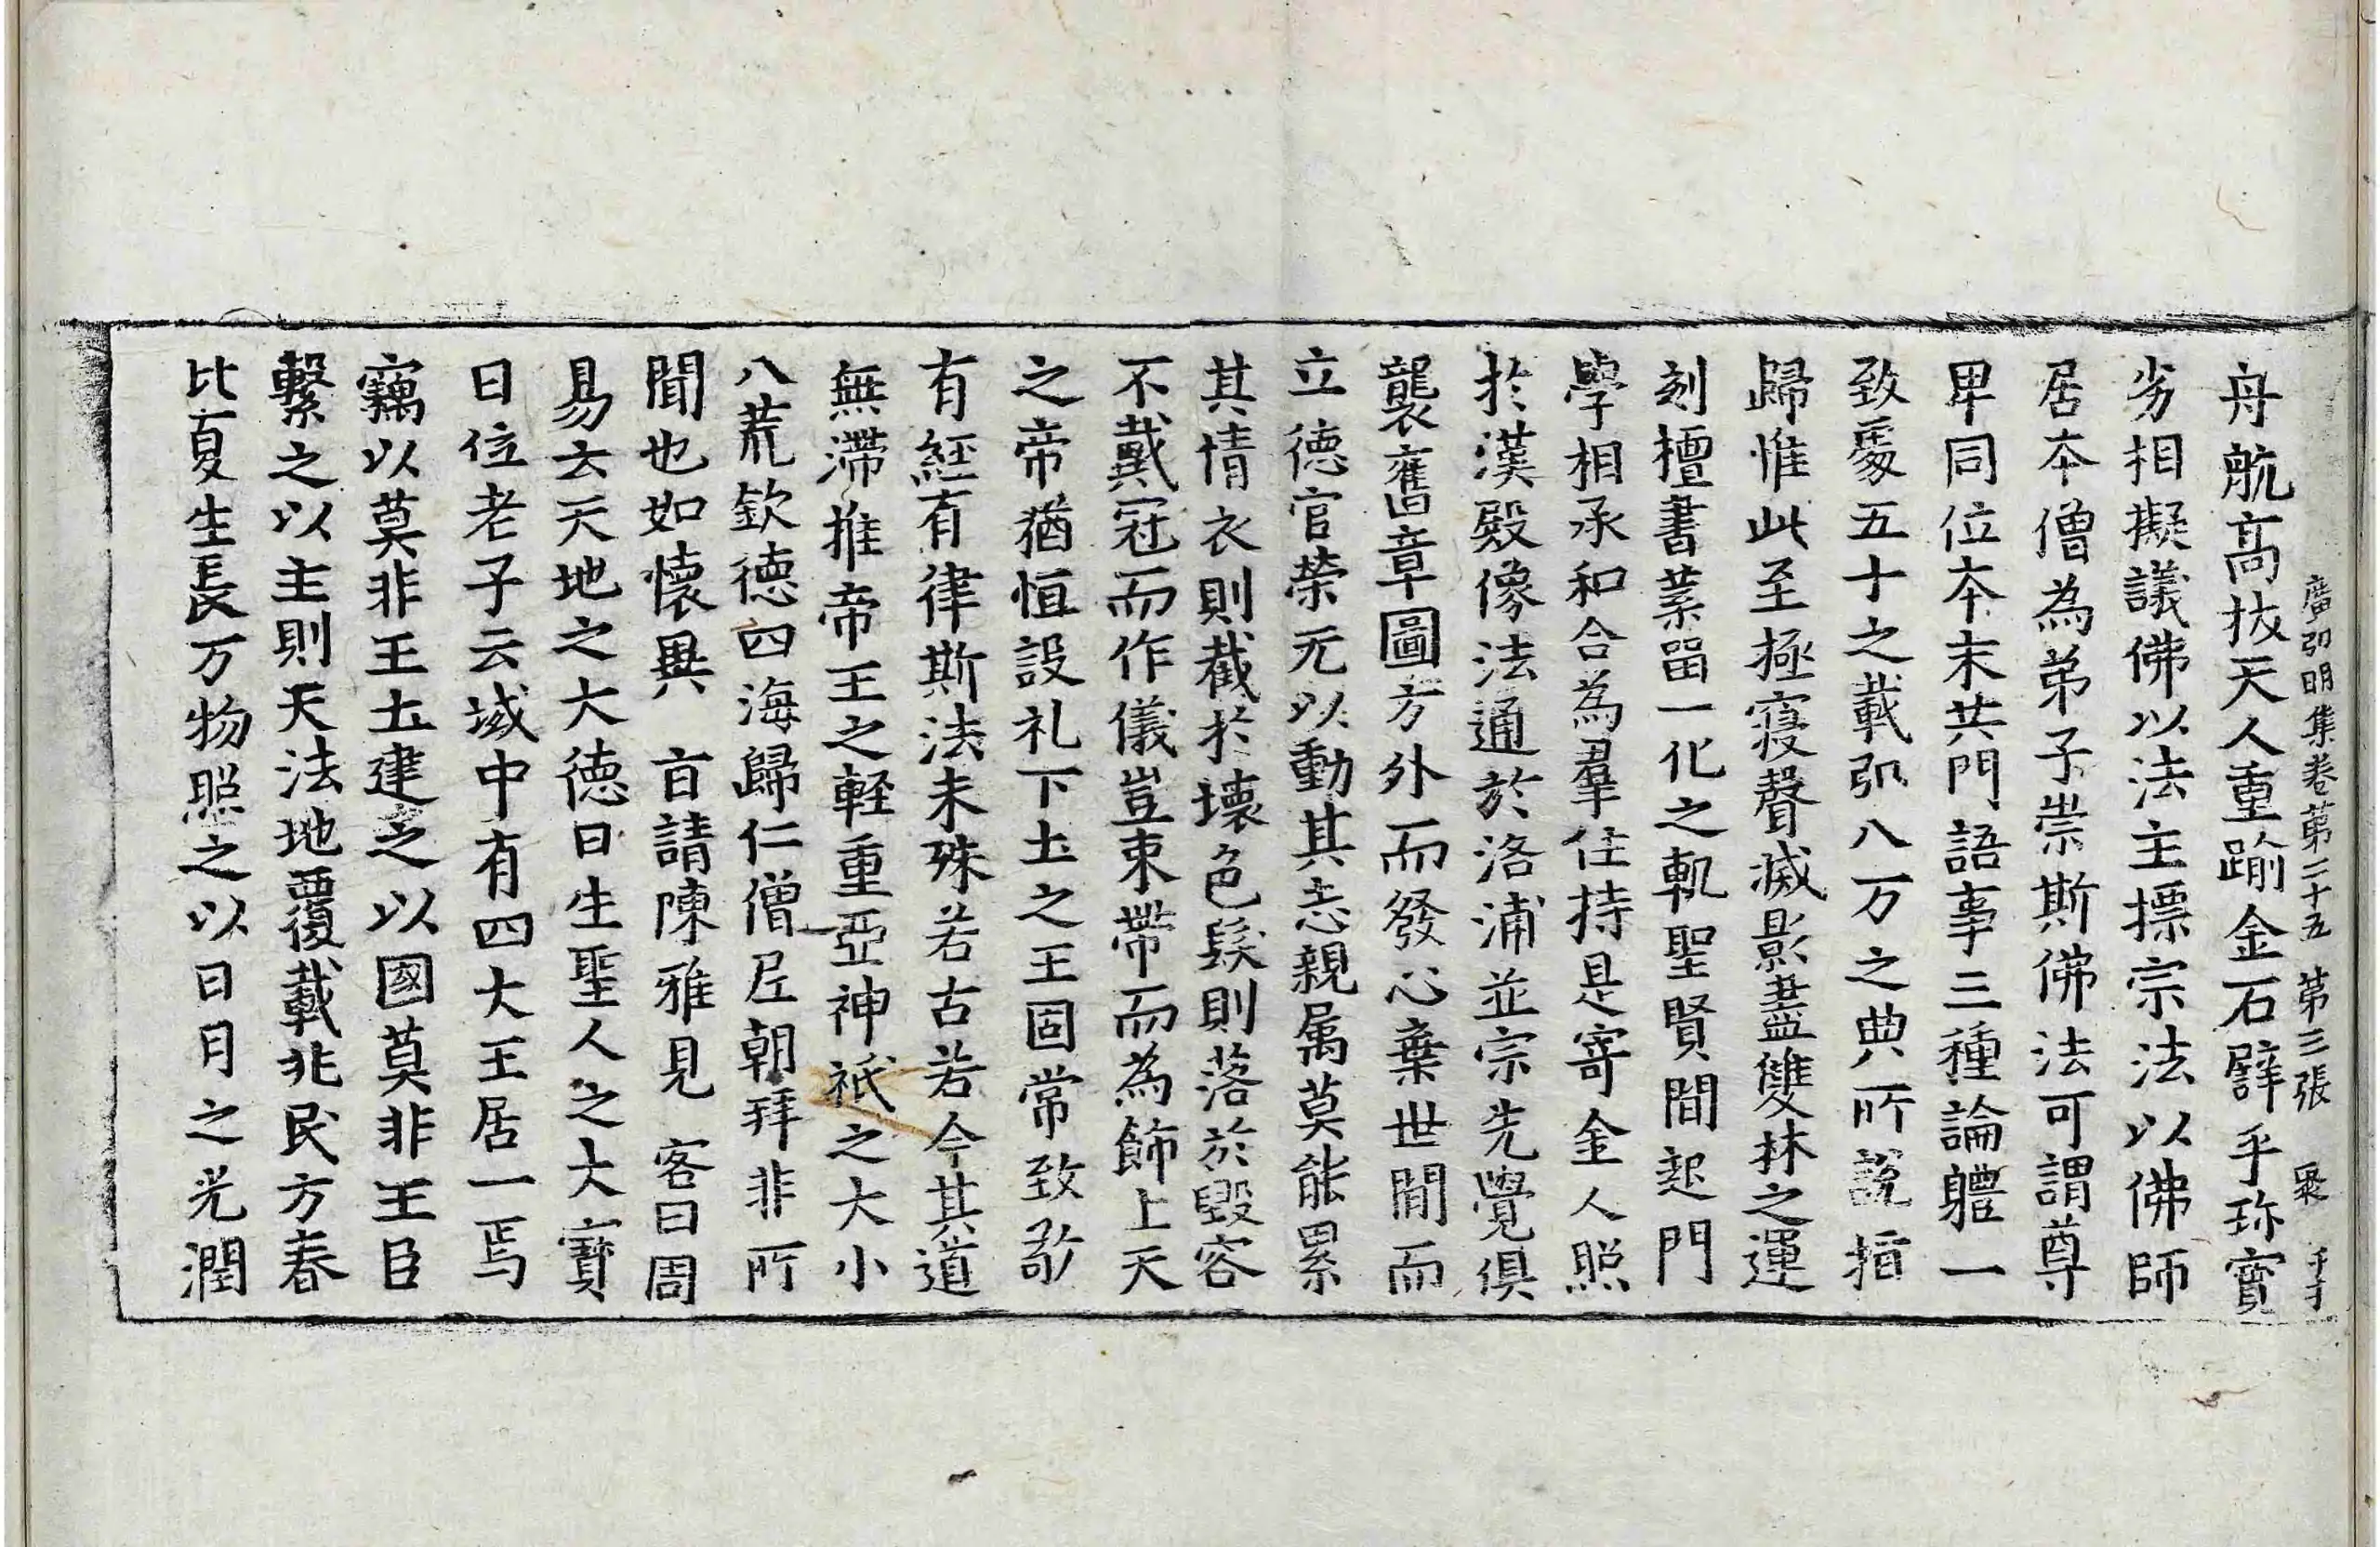 廣弘明集卷第二十五　第三張　聚
舟航髙拔天人重踰金石譬乎珎寶
劣相擬議佛以法主摽宗法以佛師
居夲僧為弟子崇斯佛法可謂尊
卑同位夲末共門語事三種論軆一
致處五十之載弘八万之典所說指
歸惟此至極寝聲滅影盡雙林之運
刻檀書葉留一化之軌聖賢間起門
學相承和合為羣住持是寄金人照
於漢殿像法通於洛浦並宗先覺俱
襲舊章圖方外而發心棄世間而
立德官榮无以動其志親属莫能累
其情衣則截於壞色髮則落於毀容
不戴冠而作儀豈束帶而為飾上天
之帝猶恒設礼下土之王固常致敬
有經有律斯法未殊若古若今其道
無滯推帝王之輕重亞神祇之大小
八荒欽德四海歸仁僧尼朝拜非所
聞也如懷異旨請陳雅見　客曰周
易云天地之大德曰生聖人之大寶
曰位老子云域中有四大王居一焉
竊以莫非王土建之以國莫非王臣
繫之以主則天法地覆載兆民方春
比夏生長万物照之以日月之光潤